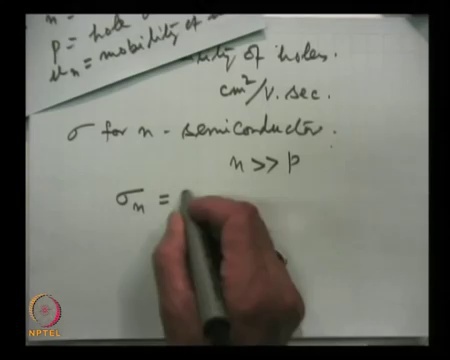 p = hole
μn = mobility of
of holes.
cm²/V. sec.
σ for n - semiconductor.
n >> p
σn =
NPTEL